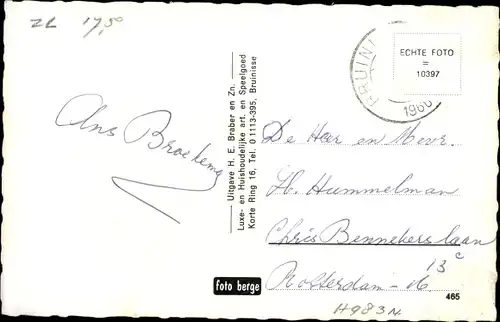 ZL 17,50
BRUINI
1960
ECHTE FOTO
=
10397
Ans Broekema
Uitgave H. E. Braber en Zn.
Luxe- en Huishoudelijke art. en Speelgoed
Korte Ring 16, Tel. 0 1113-395, Bruinisse
De Heer en Mevr.
H. Hummelman
Chris Bennekerslaan
13c
Rotterdam-
foto berge
465
H983N.